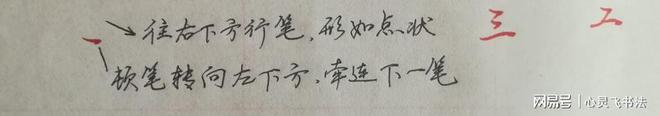 往右下方行笔,形如点状 三 工
顿笔转向左下方,牵连下一笔
网易号 | 心灵飞书法